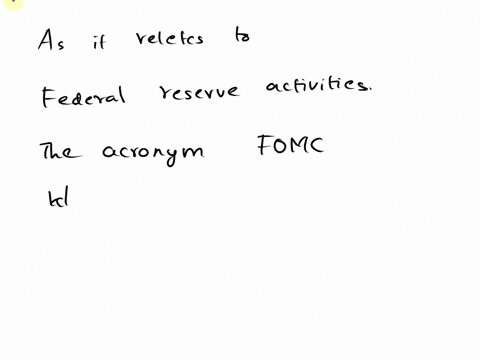 As it reletes to
Federal reserve activities.
The acronym FOMC